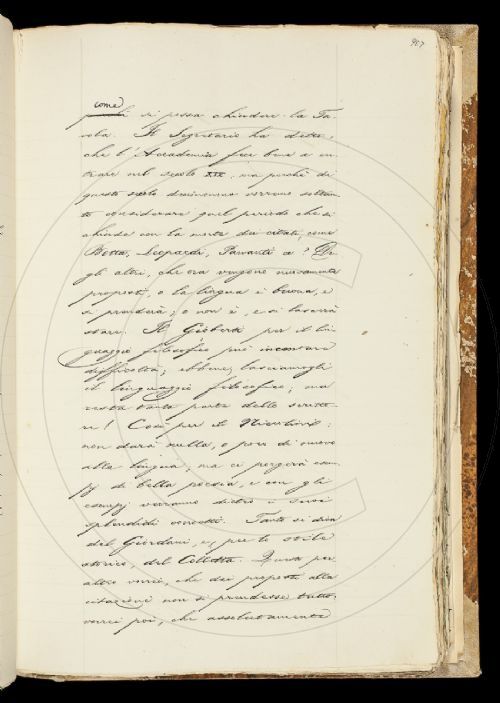 957
come
si possa chiudere la Ta-
vola. Il Segretario ha detto,
che l'Accademia fece bene a en-
trare nel secolo XIX: ma perchè di
questo solo dovremmo soltan-
to considerare quel periodo che si
chiude con la morte dei citati, come
Botta, Leopardi, Pananti &?
gli altri, che ora vengono nuovamente
proposti, o la lingua è buona, e
si prenderà; o non è, e si lascerà
stare. Il Gioberti per il lin-
guaggio filosofico può incontrare
difficoltà; ebbene, lasciamogli
il linguaggio filosofico; ma
resta tanta parte dello scritto-
re! Così per il Niccolini:
non darà nulla, o poco di nuovo
alla lingua; ma ci porgerà esem-
pj di bella poesia, e con gli
esempj verranno dietro i suoi
splendidi concetti. Tanto si dica
del Giordani, e, per lo stile
storico, del Colletta. Quanto poi
altro vorrei, che dei proposti alla
citazione non si prendesse tutto:
vorrei poi, che assolutamente